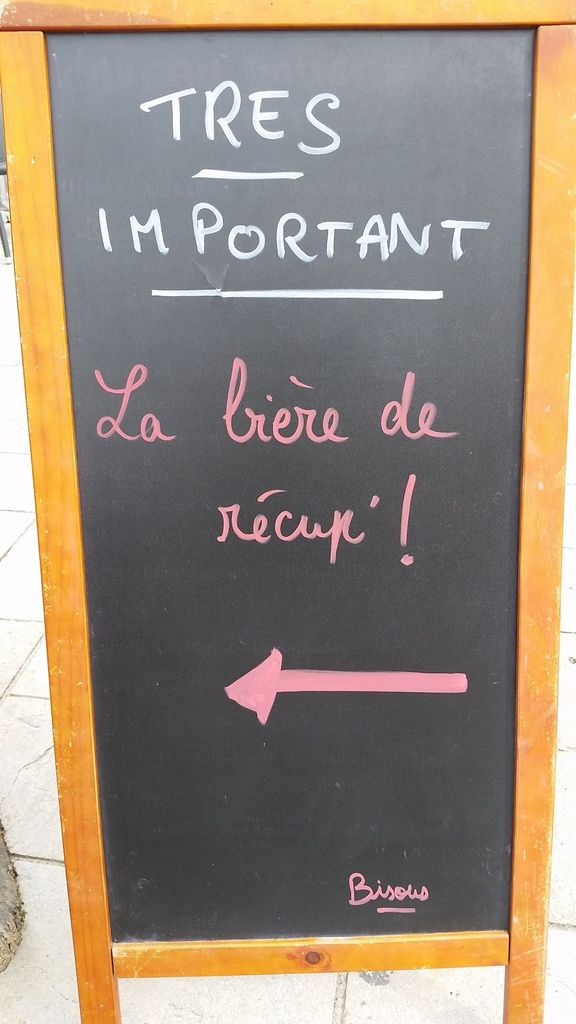 TRES
IMPORTANT
La bière de
récup' !
Bisous